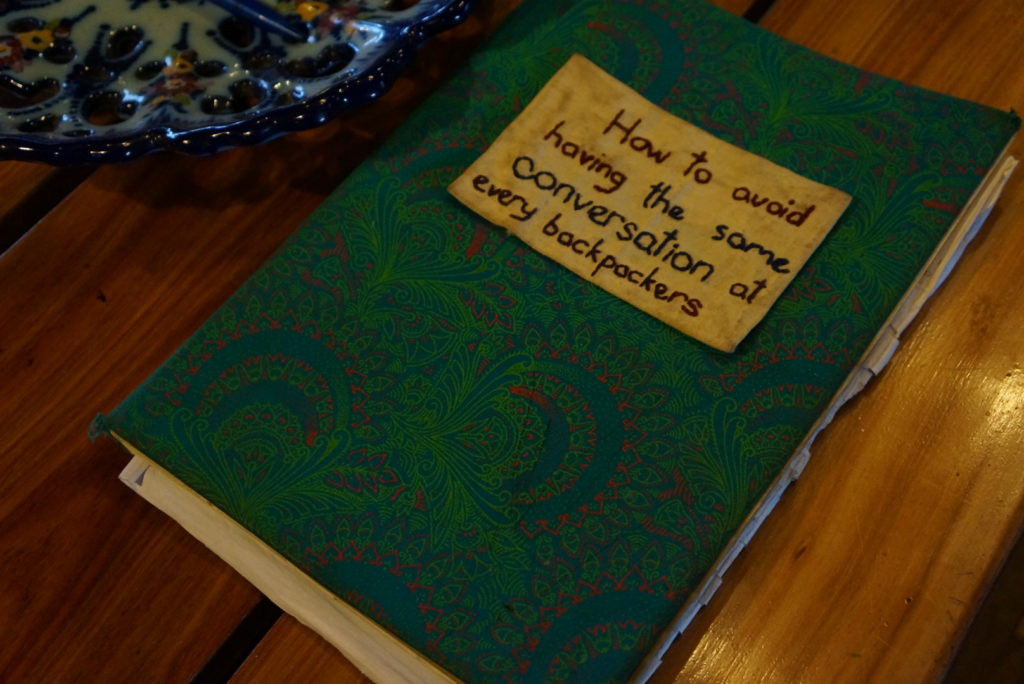 How to avoid
having the same
conversation at
every backpackers